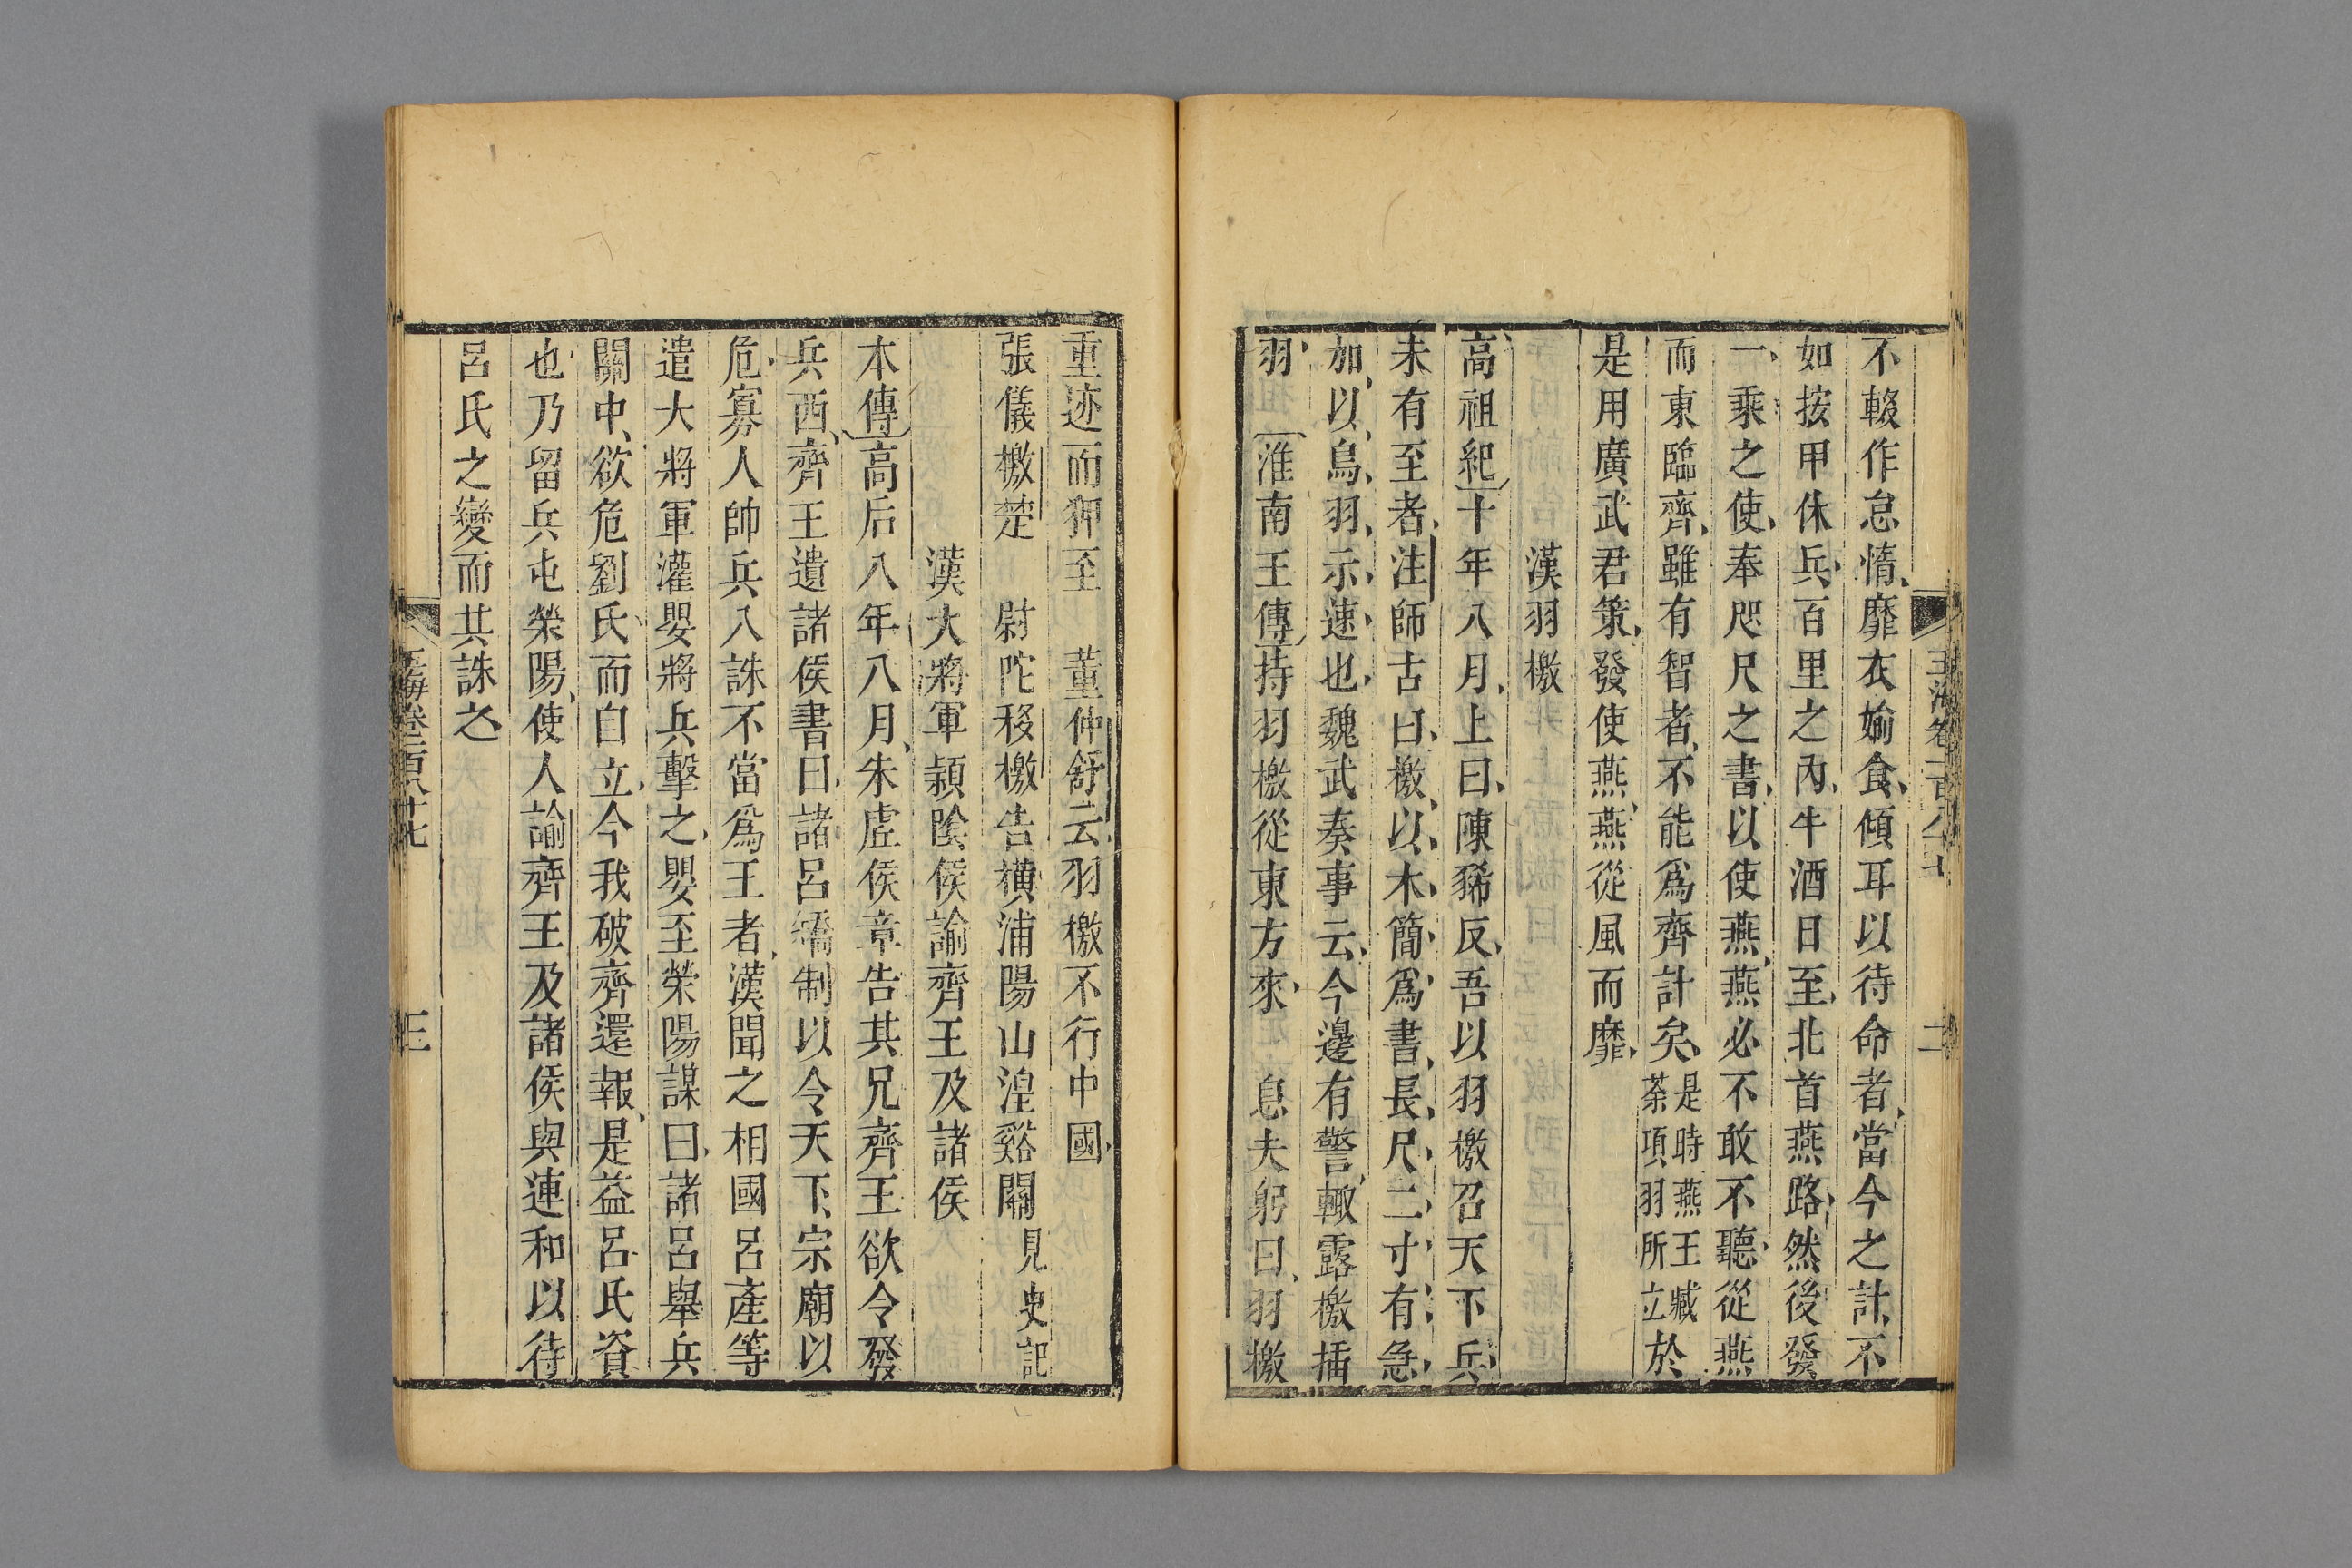 玉海卷一百八十七 二
不輟作怠惰靡衣媮食傾耳以待命者當今之計不
如按甲休兵百里之內牛酒日至北首燕路然後發
一乘之使奉咫尺之書以使燕燕必不敢不聽從燕
而東臨齊雖有智者不能爲齊計矣是時燕王臧
荼項羽所立於
是用廣武君策發使燕燕從風而靡
漢羽檄
高祖紀十年八月上曰陳豨反吾以羽檄召天下兵
未有至者注師古曰檄以木簡爲書長尺二寸有急
加以鳥羽示速也魏武奏事云今邊有警輙露檄插
羽 淮南王傳持羽檄從東方來 息夫躬曰羽檄
重迹而狎至 董仲舒云羽檄不行中國
張儀檄楚 尉陀移檄告橫浦陽山湟谿關見史記
漢大將軍潁陰侯諭齊王及諸侯
本傳高后八年八月朱虛侯章告其兄齊王欲令發
兵西齊王遺諸侯書曰諸呂矯制以令天下宗廟以
危寡人帥兵入誅不當爲王者漢聞之相國呂產等
遣大將軍灌嬰將兵擊之嬰至榮陽謀曰諸呂舉兵
關中欲危劉氏而自立今我破齊還報是益呂氏資
也乃留兵屯榮陽使人諭齊王及諸侯與連和以待
呂氏之變而共誅之
玉海卷一百八十七 三